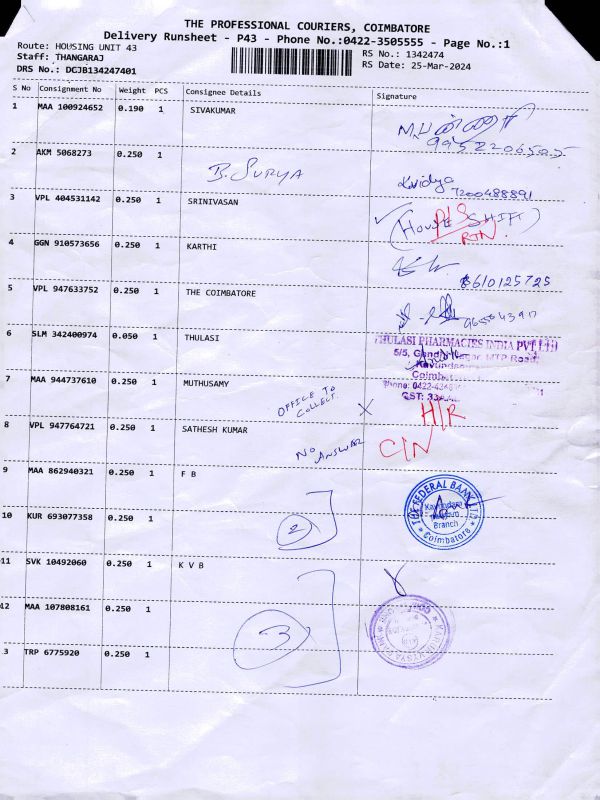 THE PROFESSIONAL COURIERS, COIMBATORE
Delivery Runsheet - P43 - Phone No.:0422-3505555 - Page No.:1
Route: HOUSING UNIT 43
RS No.: 1342474
Staff: THANGARAJ
RS Date: 25-Mar-2024
DRS No.: DCJB134247401
S No Consignment No Weight PCS Consignee Details Signature
1 MAA 100924652 0.190 1 SIVAKUMAR
2 AKM 5068273 0.250 1 B. SURYA
7200488891
3 VPL 404531142 0.250 1 SRINIVASAN (HOUSE SHIFT)
D/S
RTN.
4 GGN 910573656 0.250 1 KARTHI
8610125725
5 VPL 947633752 0.250 1 THE COIMBATORE
6 SLM 342400974 0.050 1 THULASI THULASI PHARMACIES INDIA PVT LTD
5/5, MTP Road,
Phone: 0422-
7 MAA 944737610 0.250 1 MUTHUSAMY OFFICE TO
COLLECT. X H/R
8 VPL 947764721 0.250 1 SATHESH KUMAR NO
ANSWAR C/N
9 MAA 862940321 0.250 1 F B THE FEDERAL BANK LTD
Branch
Coimbatore
10 KUR 693077358 0.250 1 2
11 SVK 10492060 0.250 1 K V B
12 MAA 107808161 0.250 1 3
3 TRP 6775920 0.250 1